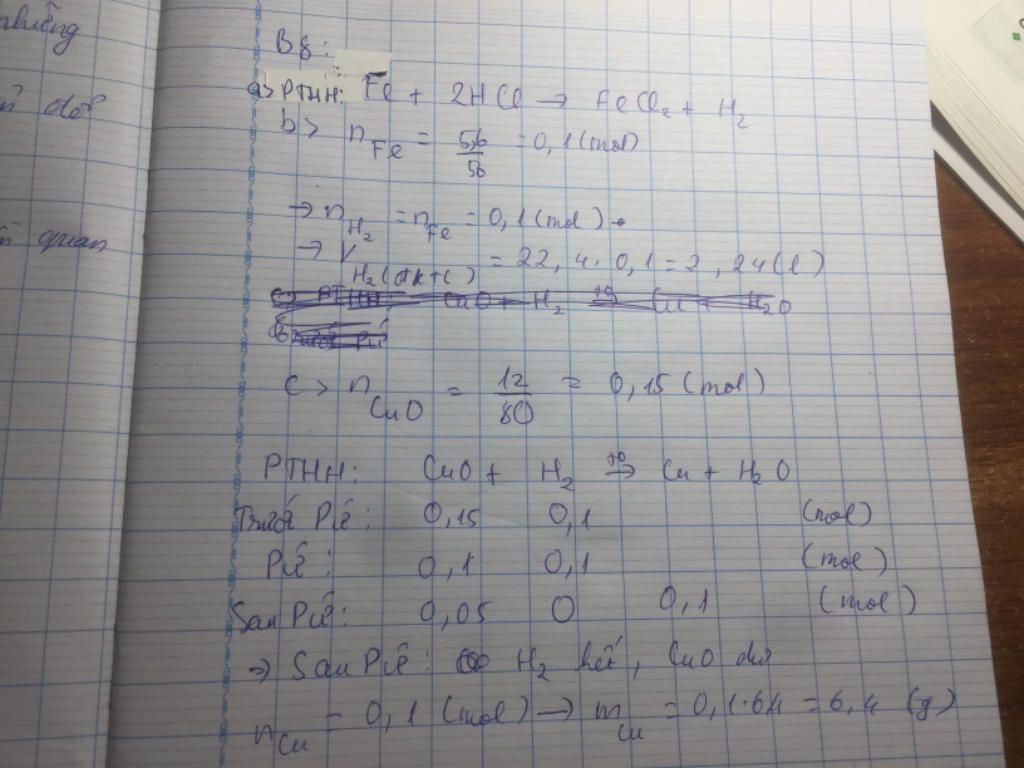 nhiềng
dof
quan
B8:
a> PTHH: Fe + 2HCl → FeCl2 + H2
b> nFe = 5,6/56 = 0,1(mol)
→ nH2 = nFe = 0,1(mol)
→ VH2(đktc) = 22,4.0,1 = 2,24(l)
c> PTHH CuO + H2 t° → Cu + H2O
c> nCuO = 12/80 = 0,15(mol)
PTHH: CuO + H2 t° → Cu + H2O
Trước Pứ: 0,15 0,1 (mol)
Pứ: 0,1 0,1 (mol)
Sau Pứ: 0,05 0 0,1 (mol)
→ Sau Pứ: H2 hết, CuO dư
nCu = 0,1(mol) → mCu = 0,1.64 = 6,4 (g)